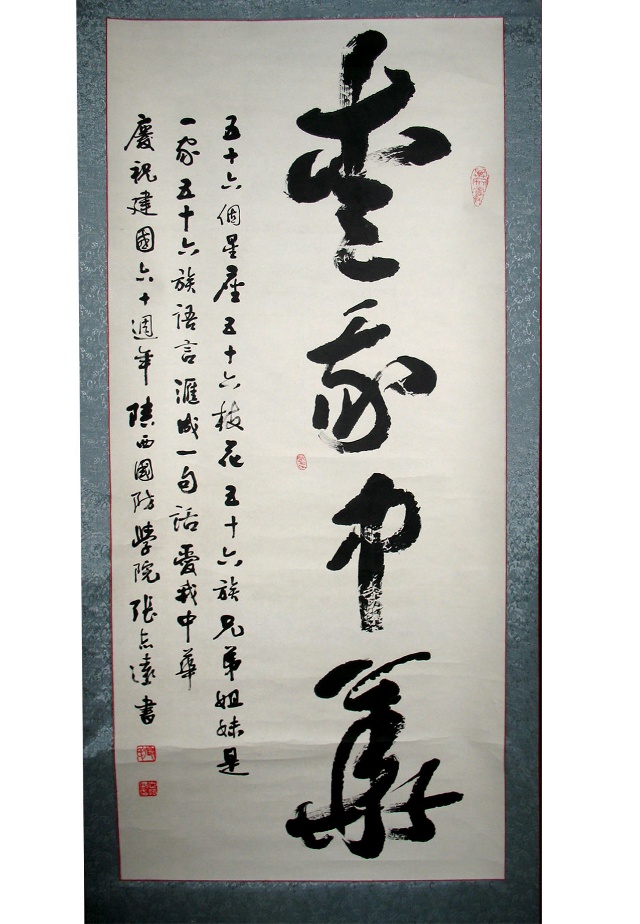 愛我中華
五十六個星座五十六枝花五十六族兄弟姐妹是
一家五十六族語言滙成一句話愛我中華
慶祝建國六十週年陝西國防學院張志遠書